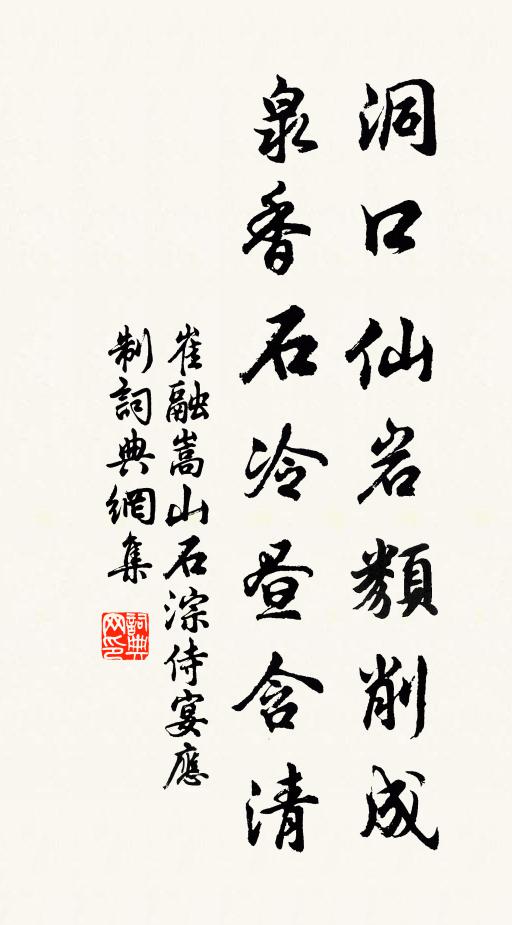 洞口仙岩類削成
泉香石冷昼含清
崔融嵩山石淙侍宴應
制詞典網集
詞典
网印